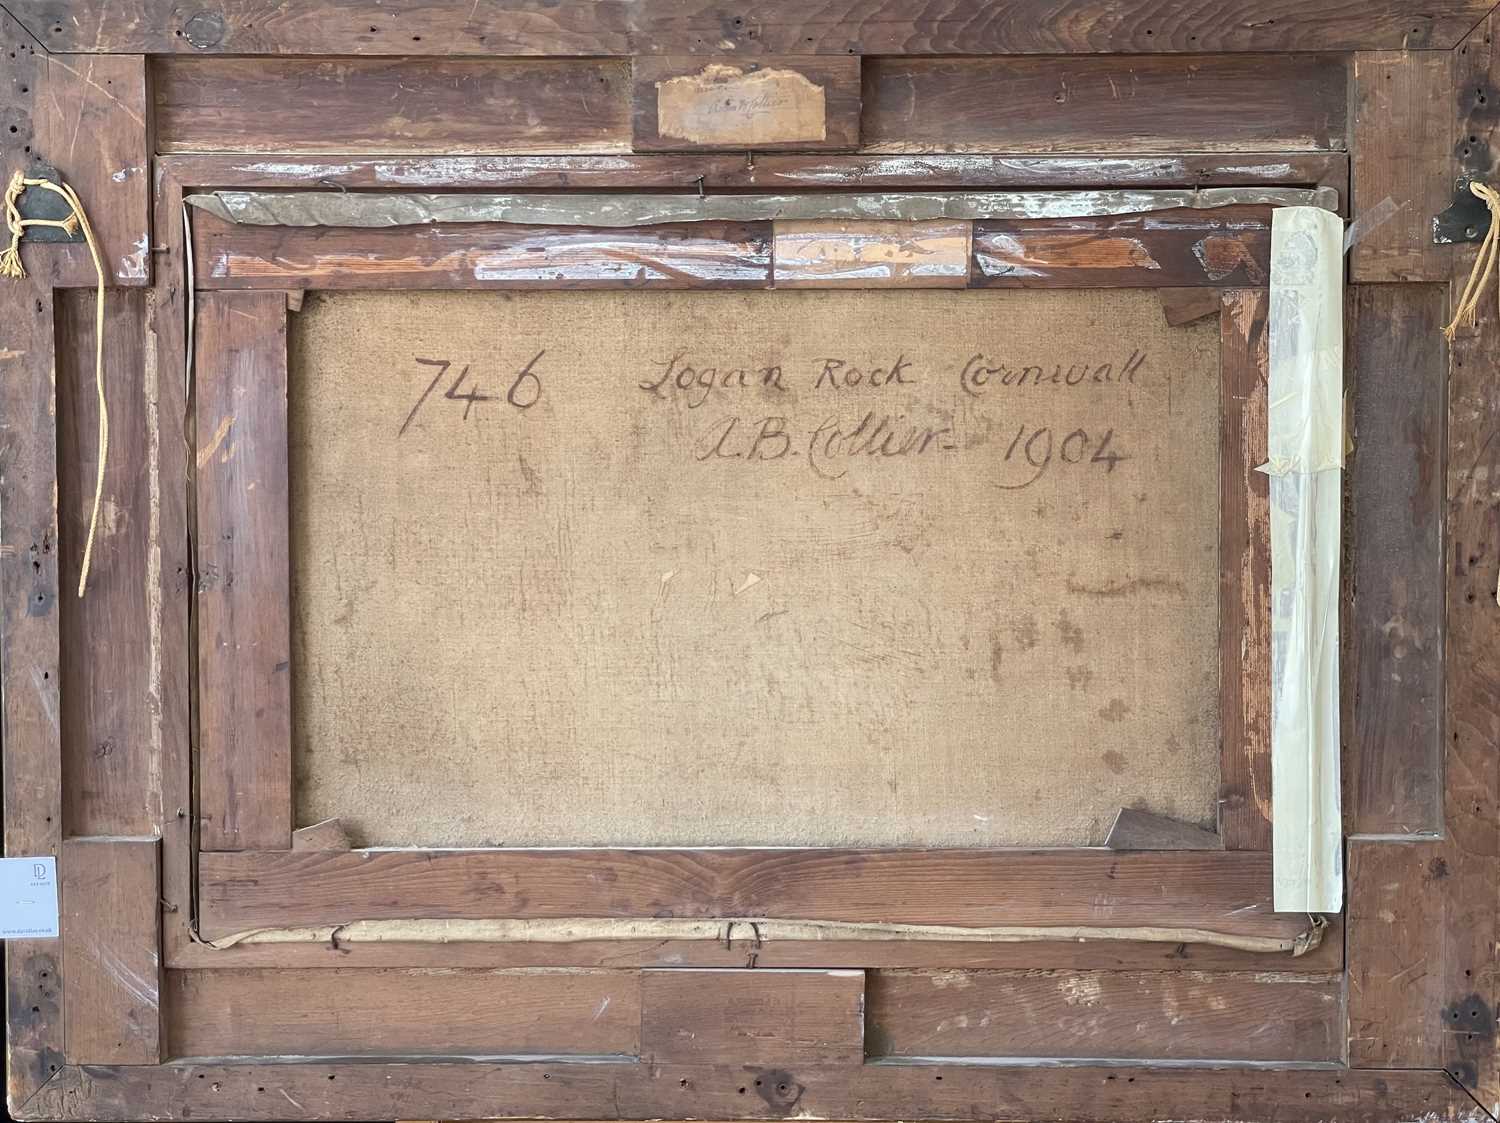 Collier
746 Logan Rock Cornwall
A.B. Collier- 1904
DL